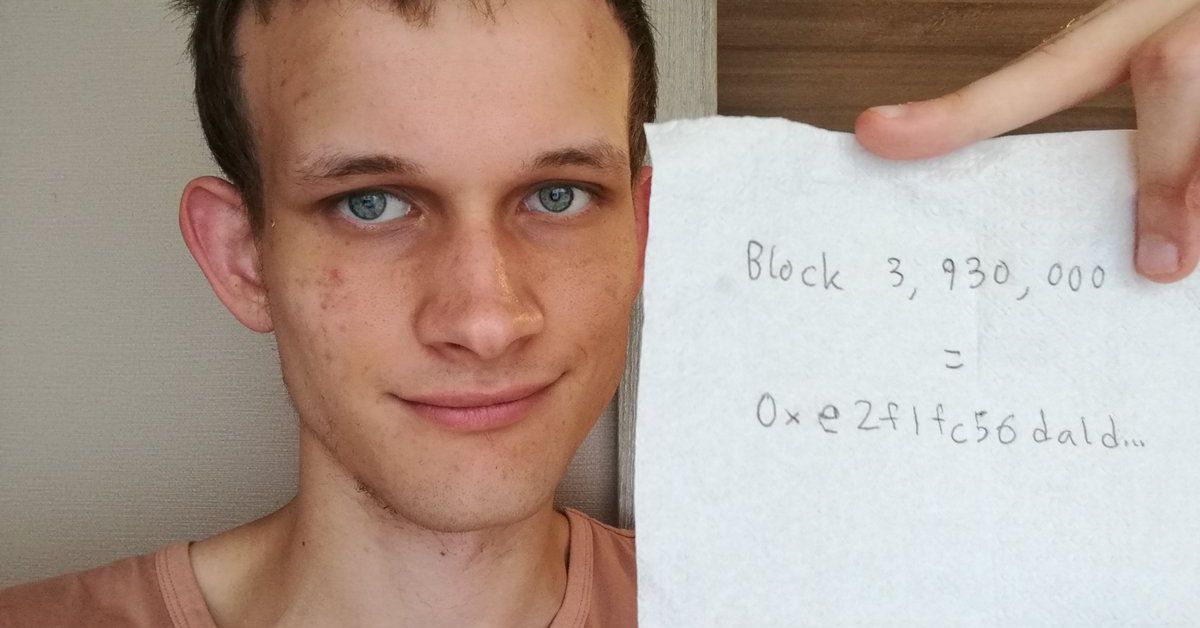 Block 3,930,000
=
0xe2f1fc56da1d...